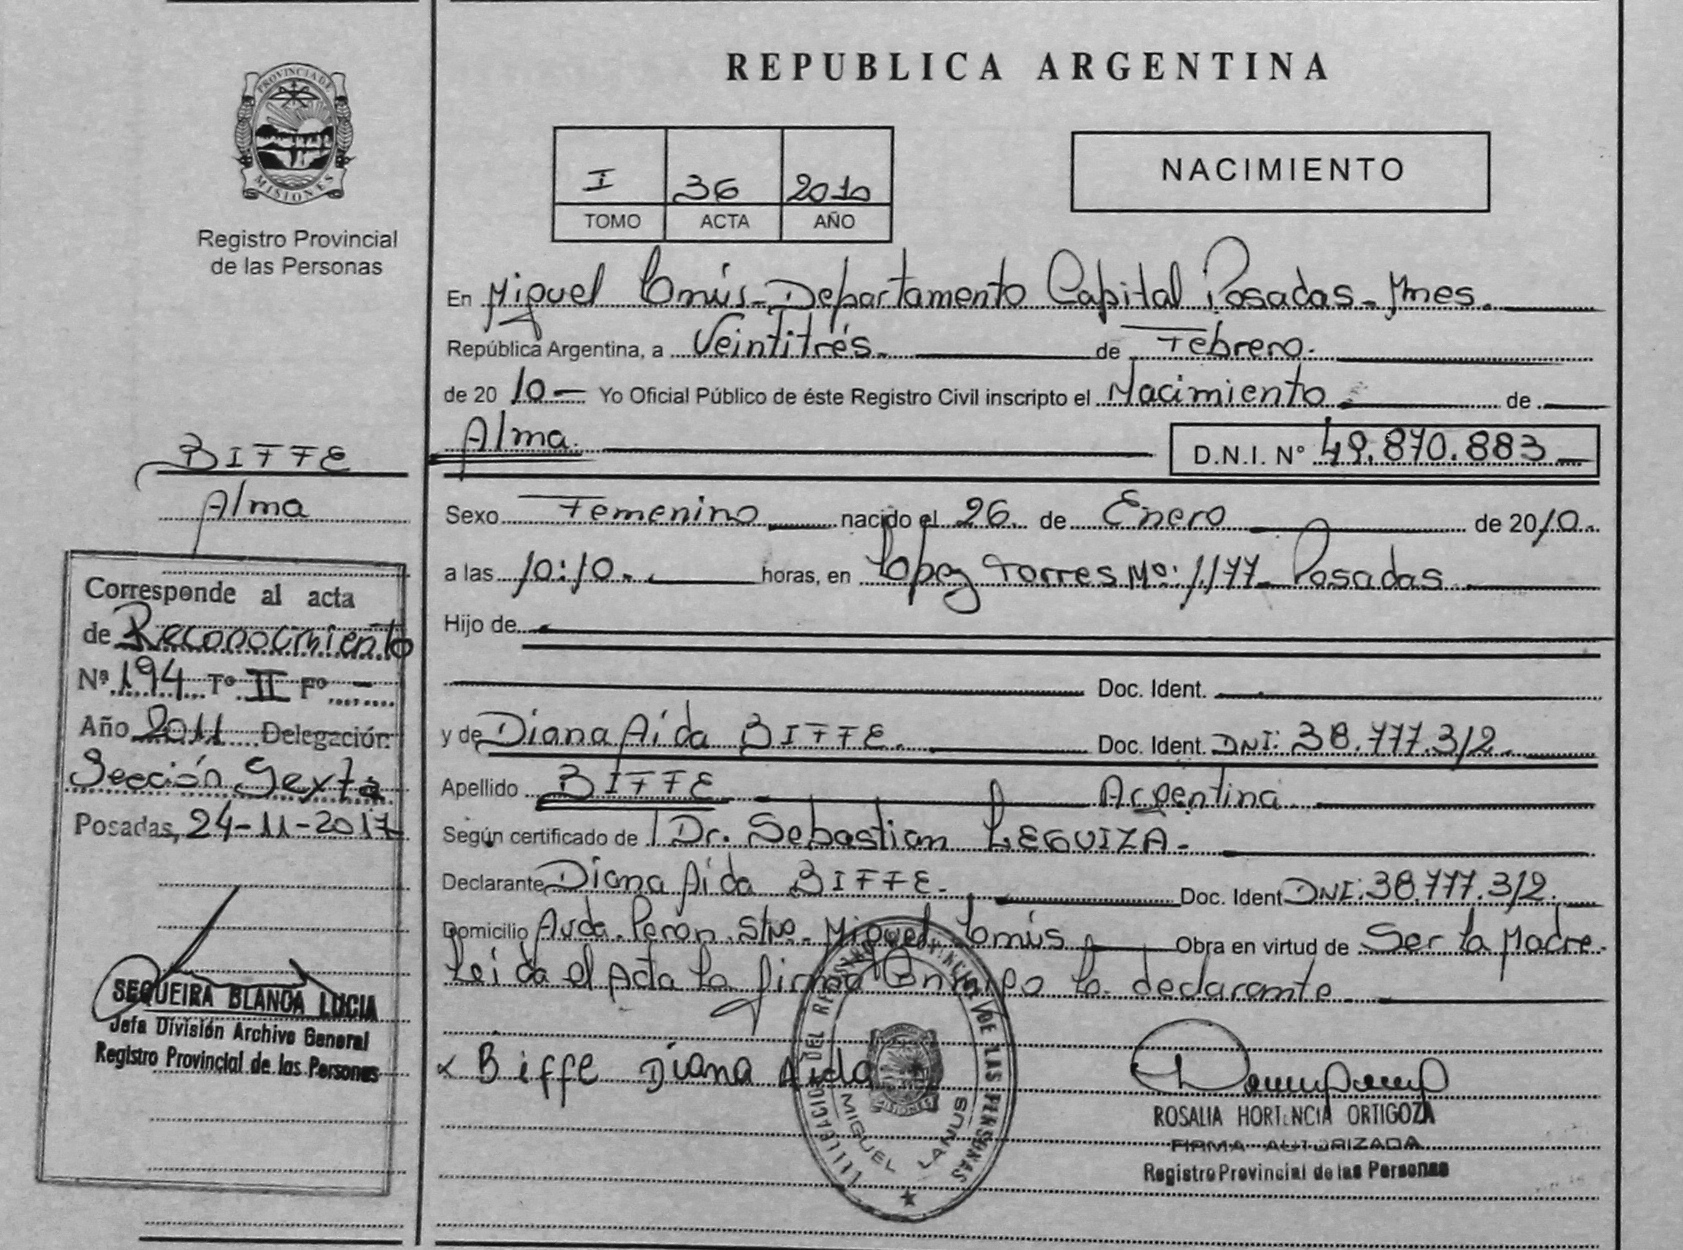 REPUBLICA ARGENTINA
PROVINCIA DE
MISIONES
Registro Provincial
de las Personas
I 36 2010
TOMO ACTA AÑO
NACIMIENTO
En Miguel Lanús - Departamento Capital Posadas - Mnes.
República Argentina, a Veintitrés. de Febrero.
de 20 10 - Yo Oficial Público de éste Registro Civil inscripto el Nacimiento de
Alma. D.N.I. N° 49.870.883
Sexo Femenino nacido el 26. de Enero de 2010.
a las 10:10. horas, en López Torres Nº: 1177 - Posadas
Hijo de
Doc. Ident.
y de Diana Aida BIFFE. Doc. Ident. DNI: 38.777.312.
Apellido BIFFE Argentina
Según certificado de Dr. Sebastian LEGUIZA -
Declarante Diana Aida BIFFE. Doc. Ident DNI: 38.777.312.
Domicilio Avda. Perón S/Nº - Miguel Lanús Obra en virtud de Ser la Madre.
Leida el Acta la firma Conmigo la declarante.
Biffe Diana Aida
DELEGACION DEL REGISTRO PROVINCIAL DE LAS PERSONAS
MIGUEL LANUS
ROSALIA HORTENCIA ORTIGOZA
FIRMA AUTORIZADA
Registro Provincial de las Personas
BIFFE
Alma
Corresponde al acta
de Reconocimiento
Nº 194 Tº II Fº -
Año 2011 Delegación
Sección Sexta
Posadas, 24-11-2017
SEQUEIRA BLANCA LUCIA
Jefa División Archivo General
Registro Provincial de las Personas